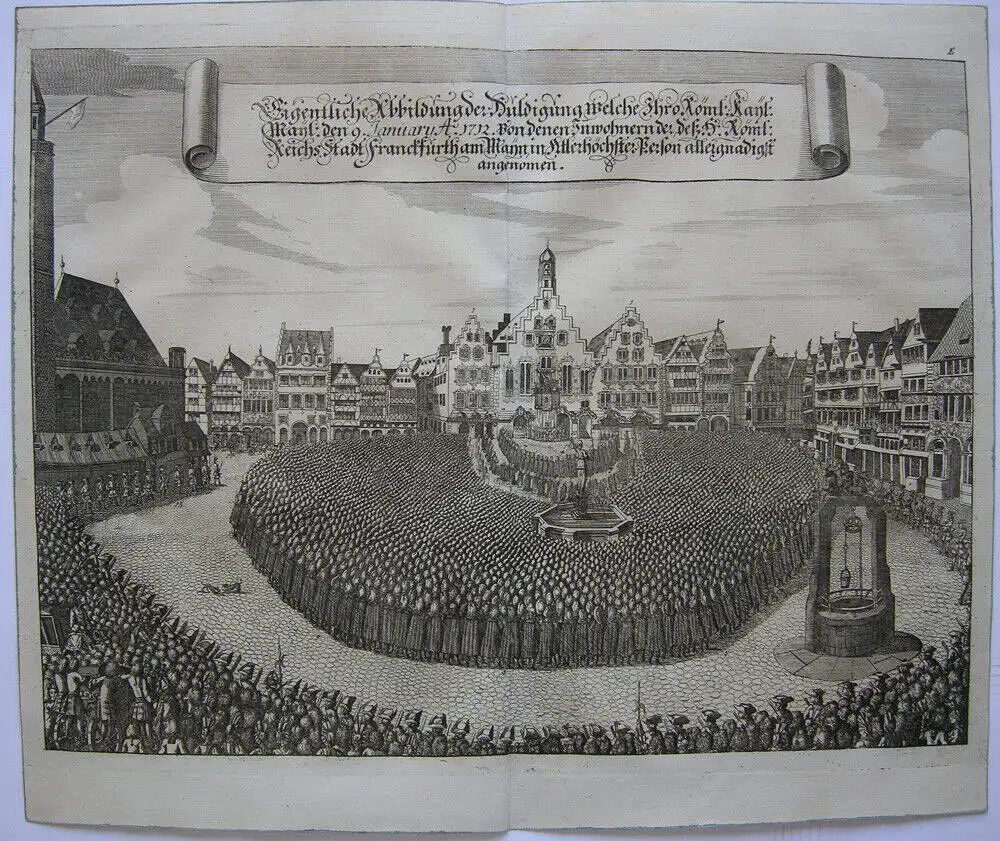 E
Eigentliche Abbildung der Huldigung welche Ihro Röml: Kayl:
Mayl: den 9. January Aº. 1712. Von denen Inwohnern der deß H. Röml:
Reichs Stadt Franckfürth am Mayn in Allerhöchster Person allergnädigst
angenom̅en.